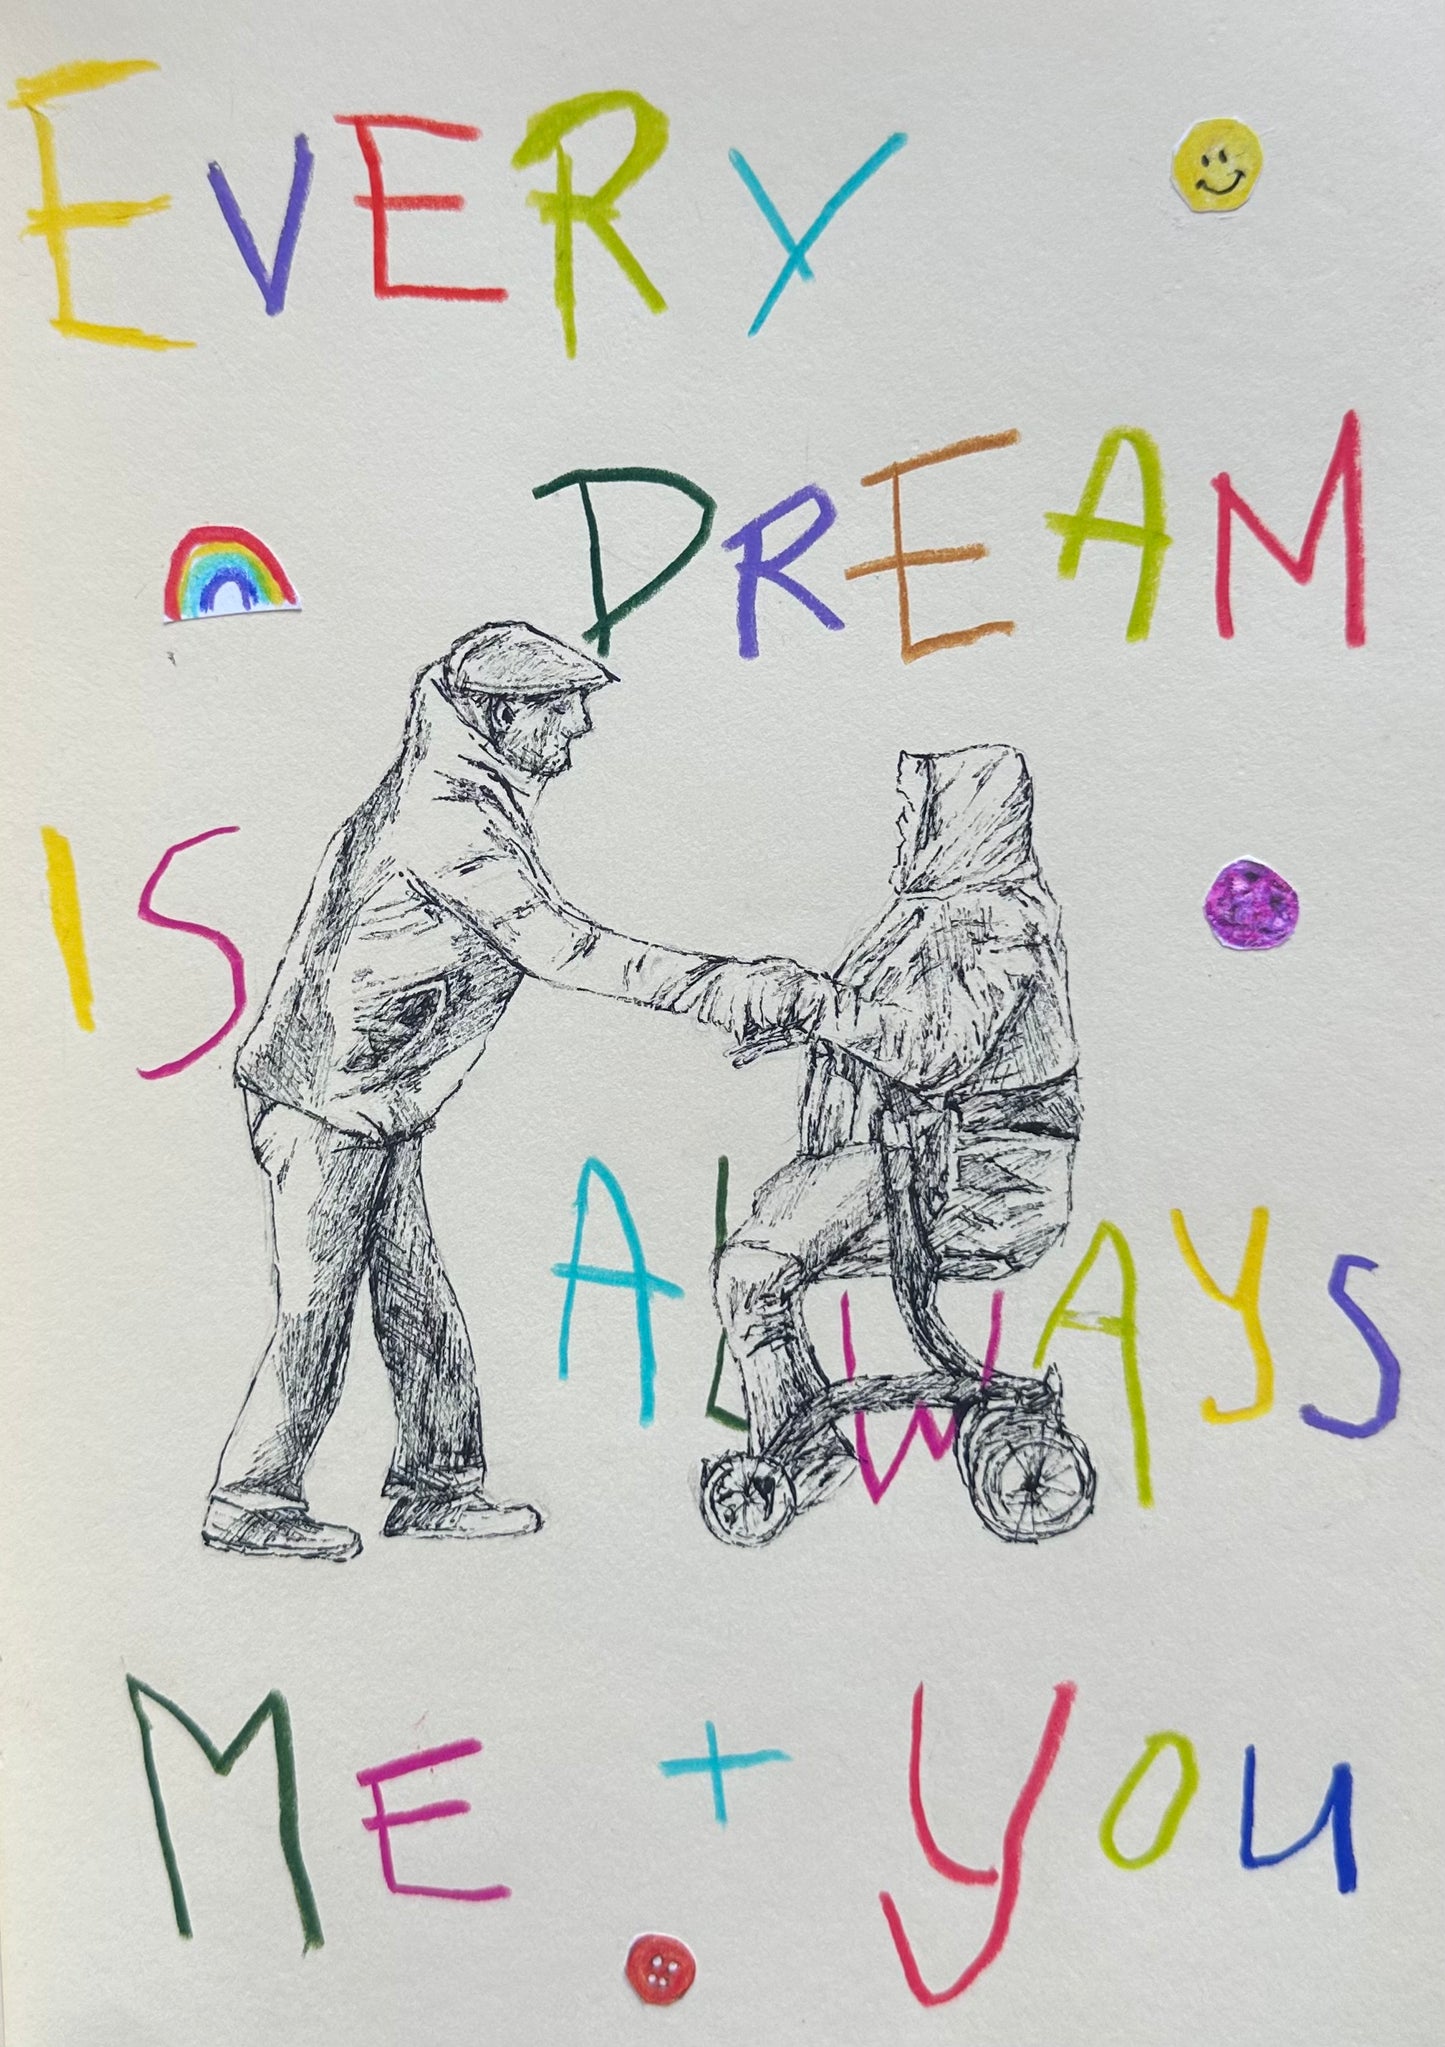 EVERY
DREAM
IS
ALWAYS
ME + YOU